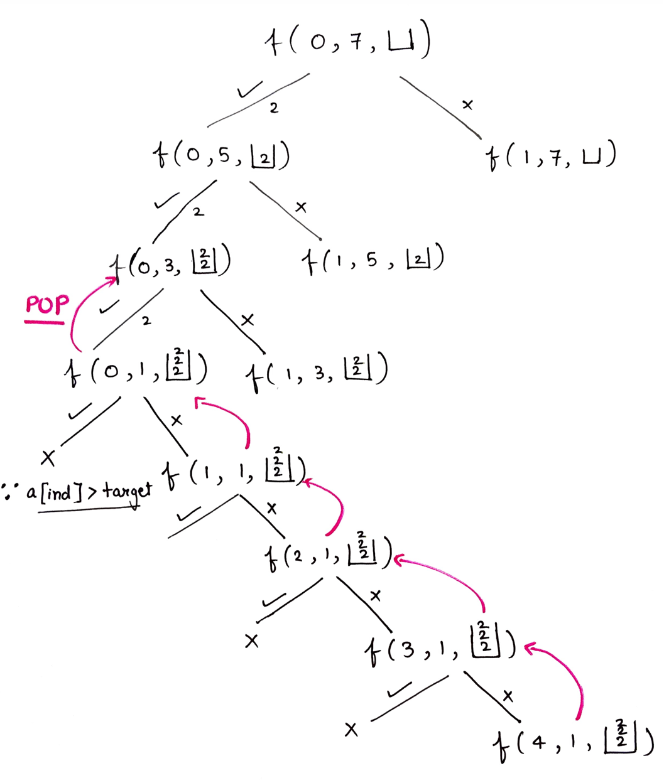 f(0,7,⊔)
✓ 2 ×
f(0,5,|2|) f(1,7,⊔)
✓ 2 ×
f(0,3,|2 2|) f(1,5,|2|)
POP ✓ 2 ×
f(0,1,|2 2 2|) f(1,3,|2 2|)
✓ ×
× f(1,1,|2 2 2|)
∵ a[ind]>target
✓ ×
f(2,1,|2 2 2|)
✓ ×
× f(3,1,|2 2 2|)
✓ ×
× f(4,1,|2 2 2|)